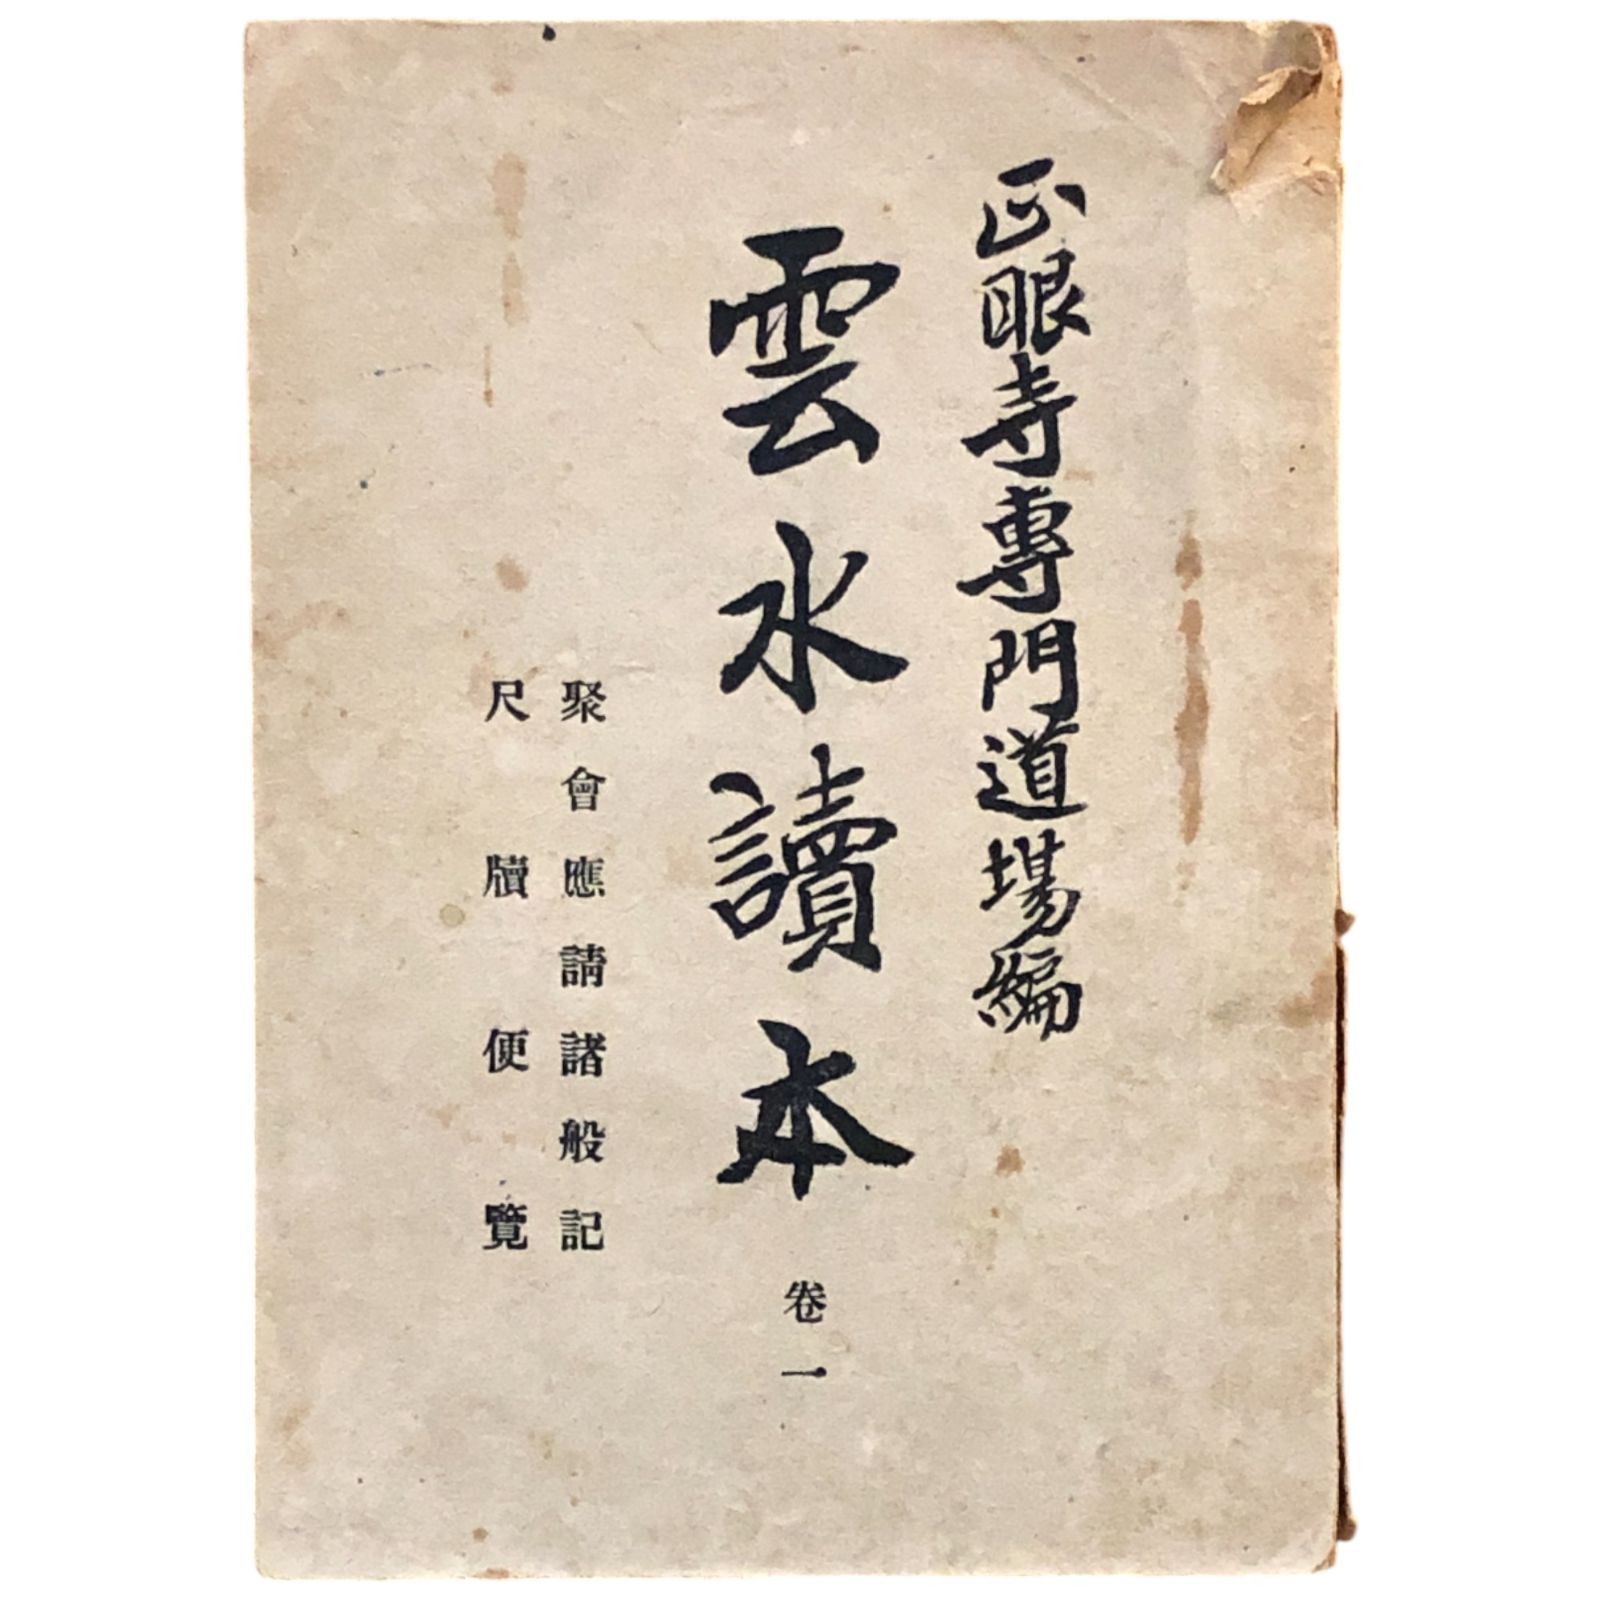 正眼寺專門道場編
雲水讀本 卷一
聚會應請諸般記
尺牘便覽